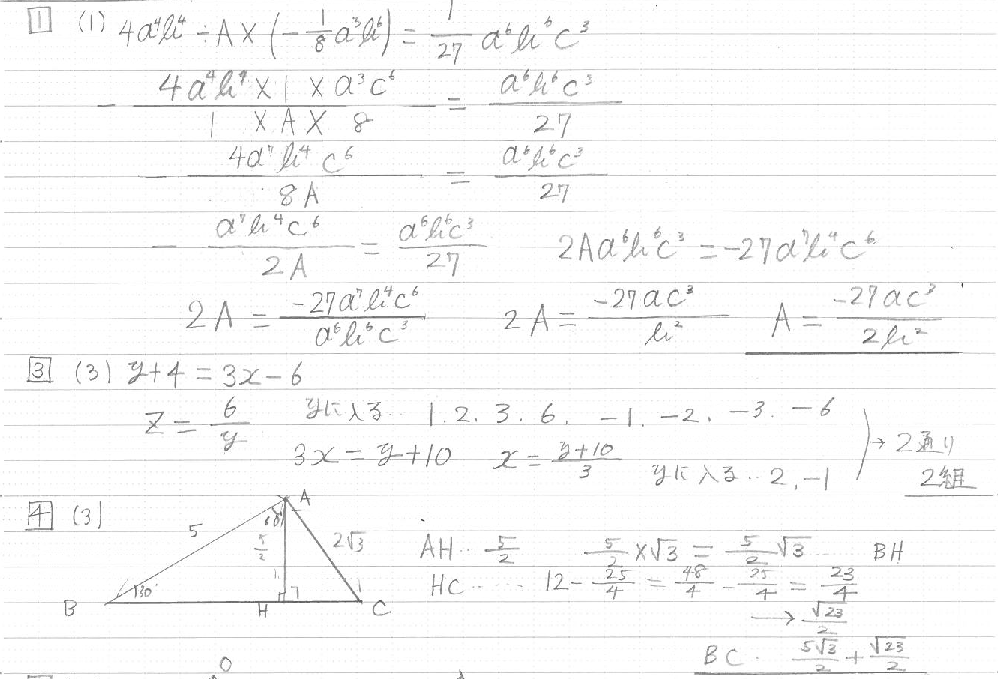 1 (1) 4a⁴b⁴ ÷ A × (-1/8 a³b⁶) = 1/27 a⁶b⁶c³
- (4a⁴b⁴ × 1 × a³c⁶)/(1 × A × 8) = a⁶b⁶c³/27
- 4a⁷b⁴c⁶/8A = a⁶b⁶c³/27
- a⁷b⁴c⁶/2A = a⁶b⁶c³/27 2Aa⁶b⁶c³ = -27a⁷b⁴c⁶
2A = -27a⁷b⁴c⁶/a⁶b⁶c³ 2A = -27ac³/b² A = -27ac³/2b²
3 (3) y+4 = 3x-6
z = 6/y yに入る… 1. 2. 3. 6. -1. -2. -3. -6
3x = y+10 x = (y+10)/3 yに入る… 2, -1 → 2通り
2組
4 (3)
A
60°
5 5/2 2√3 AH… 5/2 5/2×√3 = 5/2√3 … BH
30° HC…… 12 - 25/4 = 48/4 - 25/4 = 23/4
B H C → √23/2
BC. 5√3/2 + √23/2